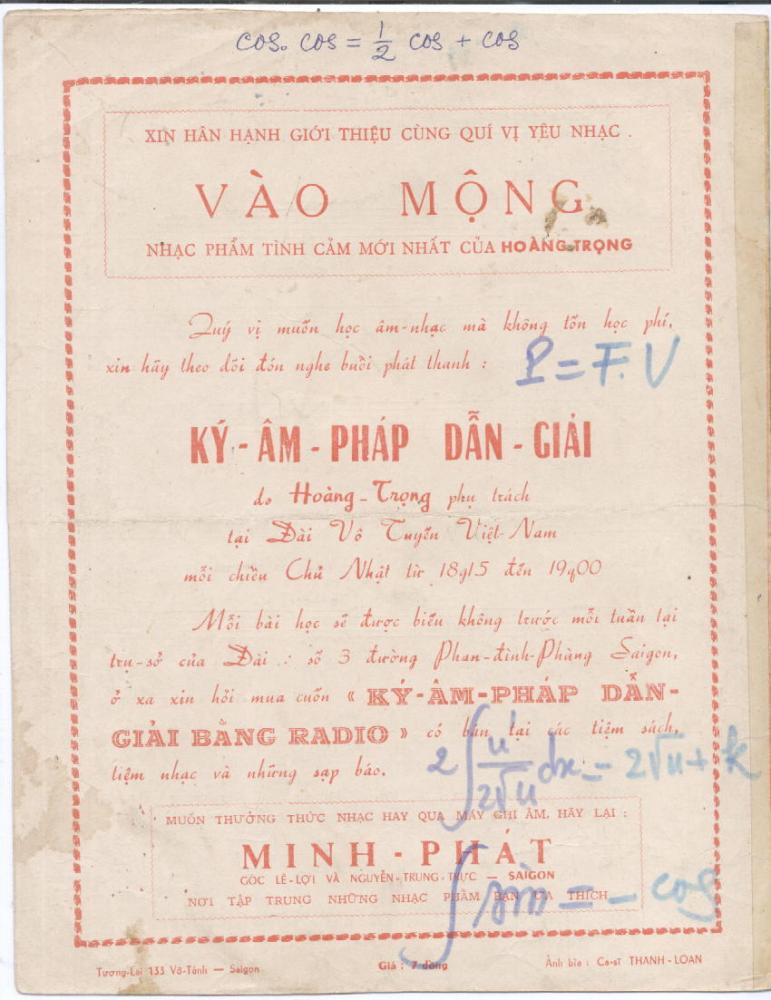 cos. cos = 1/2 cos + cos
XIN HÂN HẠNH GIỚI THIỆU CÙNG QUÍ VỊ YÊU NHẠC .
VÀO MỘNG
NHẠC PHẨM TÌNH CẢM MỚI NHẤT CỦA HOÀNG TRỌNG
Quý vị muốn học âm-nhạc mà không tốn học phí,
xin hãy theo dõi đón nghe buổi phát thanh :
P = F.V
KÝ - ÂM - PHÁP DẪN - GIẢI
do Hoàng - Trọng phụ trách
tại Đài Vô Tuyến Việt-Nam
mỗi chiều Chủ Nhật từ 18g15 đến 19g00
Mỗi bài học sẽ được biếu không trước mỗi tuần tại
trụ-sở của Đài : số 3 đường Phan-đình-Phùng Saigon,
ở xa xin hỏi mua cuốn « KÝ-ÂM-PHÁP DẪN-
GIẢI BẰNG RADIO » có bán tại các tiệm sách,
tiệm nhạc và những sạp báo.
2∫ u'/2√u dx = 2√u + k
MUỐN THƯỞNG THỨC NHẠC HAY QUA MÁY GHI ÂM, HÃY LẠI :
MINH - PHÁT
GÓC LÊ-LỢI VÀ NGUYỄN-TRUNG-TRỰC — SAIGON
NƠI TẬP TRUNG NHỮNG NHẠC PHẨM BẠN ƯA THÍCH
∫ sin = - cos
Tương-Lai 133 Võ-Tánh — Saigon
Giá : 7 đồng
Ảnh bìa : Ca-sĩ THANH-LOAN